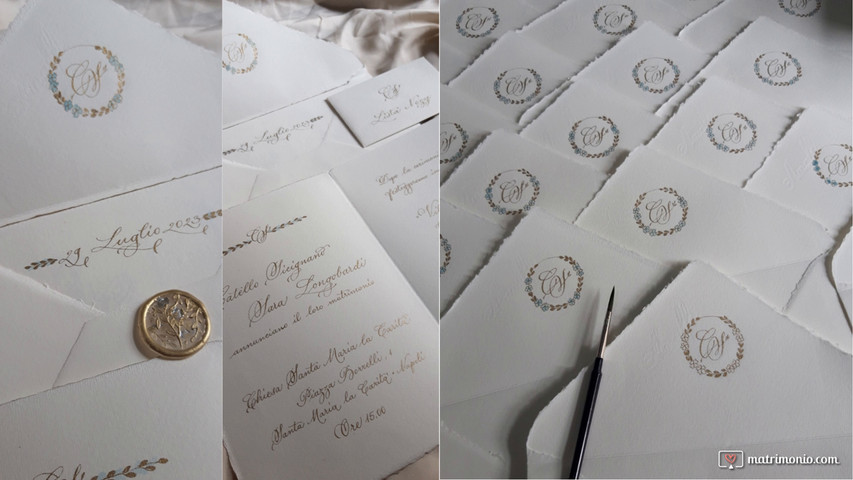 CS
29 Luglio 2023
CS
29 Luglio 2023
CS
Lista Nozze
Dopo la
CS
atello Sicignano
Sara Longobardi
annunciano il loro matrimonio
Chiesa Santa Maria la Carità
Piazza Borrelli, 1
Santa Maria la Carità - Napoli
Ore 15:00
CS
CS
CS
CS
CS
CS
CS
CS
CS
CS
CS
matrimonio.com